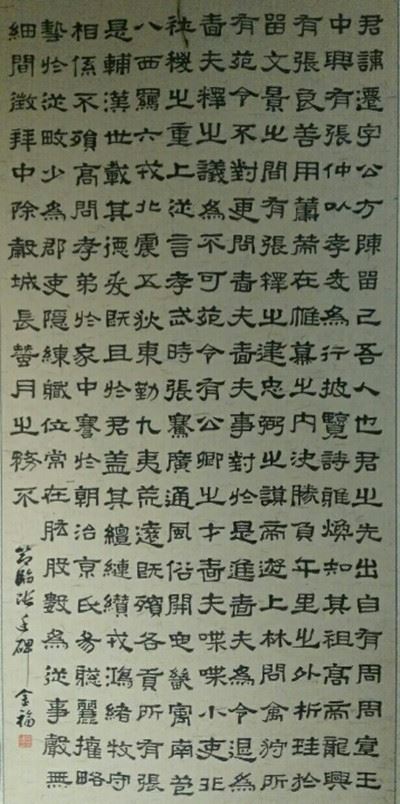 君諱遷字公方陳留己吾人也君之先出自有周周宣王
中興有張仲以孝友為行披覽詩雅煥知其祖高帝龍興
有張良善用籌策在帷幕之內決勝負千里之外析珪於
留文景之間有張釋之建忠弼之謨帝遊上林問禽狩所
有苑令不對更問嗇夫嗇夫事對於是進嗇夫為令退為
嗇夫釋之議為不可苑令有公卿之才嗇夫喋喋小吏非
社稷之重上從言孝武時張騫廣通風俗開定畿寓南苞
八西羈六戎北震五狄東勤九夷荒遠既殯各貢所有張
是輔漢世載其德爰既且於君蓋其繵縺纘戎鴻緒牧守
相係不殞高問孝弟於家中謇於朝治京氏易聰麗權略
藝於從畋少為郡吏隱練職位常在肱股數為從事聲無
細間徵拜中除穀城長蠶月之務不
節臨張遷碑 金福